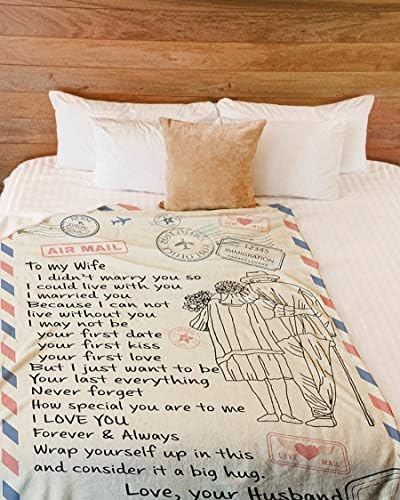 AIR MAIL
12345
IMMIGRATION
To my Wife
I didn't marry you so
I could live with you
I married you
Because I can not
live without you
I may not be
your first date
your first kiss
your first love
But I just want to be
Your last everything
Never forget
How special you are to me
I LOVE YOU
Forever & Always
Wrap yourself up in this
and consider it a big hug.
Love, your Husband
LOVE MAIL